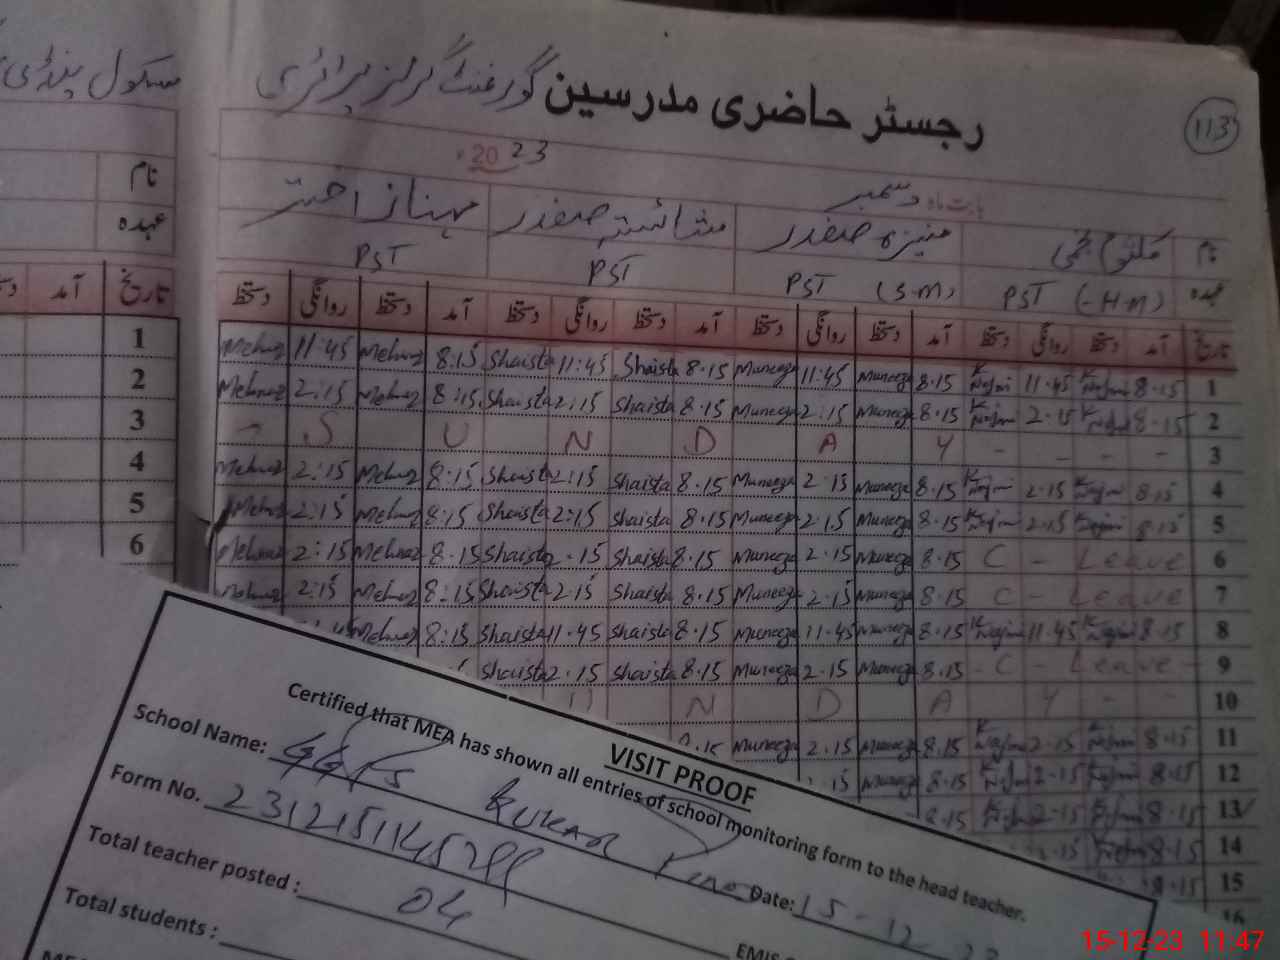 رجسٹر حاضری مدرسین گورنمنٹ گرلز پرائمری
113
سکول پنڈی
بابت ماہ دسمبر 2023
نام کلثوم نجمی منیزہ صفدر شائستہ صفدر مہناز اختر
عہدہ PST (-H-M) PST (S-M) PST PST
نام
عہدہ
تاریخ آمد دستخط روانگی دستخط آمد دستخط روانگی دستخط آمد دستخط روانگی دستخط آمد دستخط روانگی دستخط
تاریخ آمد
Mehnaz 11:45 Mehnaz 8:15 Shaista 11:45 Shaista 8.15 Muneeza 11:45 Muneeza 8.15 K Najmi 11.45 K Najmi 8.15 1
Mehnaz 2:15 Mehnaz 8:15 Shaista 2:15 Shaista 8.15 Muneeza 2:15 Muneeza 8.15 K Najmi 2.15 K Najmi 8.15 2
- S U N D A Y - - - - 3
Mehnaz 2:15 Mehnaz 8:15 Shaista 2:15 Shaista 8.15 Muneeza 2.15 Muneeza 8.15 K Najmi 2.15 K Najmi 8.15 4
Mehnaz 2:15 Mehnaz 8:15 Shaista 2:15 Shaista 8.15 Muneeza 2.15 Muneeza 8.15 K Najmi 2.15 K Najmi 8.15 5
Mehnaz 2:15 Mehnaz 8.15 Shaista 2.15 Shaista 8.15 Muneeza 2.15 Muneeza 8.15 C - Leave 6
Mehnaz 2:15 Mehnaz 8:15 Shaista 2.15 Shaista 8.15 Muneeza 2.15 Muneeza 8.15 C - Leave 7
Mehnaz 8:15 Shaista 11.45 Shaista 8.15 Muneeza 11.45 Muneeza 8.15 K Najmi 11.45 K Najmi 8.15 8
Shaista 2.15 Shaista 8.15 Muneeza 2.15 Muneeza 8.15 - C - Leave - 9
U N D A Y - - 10
8.15 Muneeza 2.15 Muneeza 8.15 K Najmi 2.15 K Najmi 8.15 11
2.15 Muneeza 8.15 K Najmi 2.15 K Najmi 8.15 12
8.15 K Najmi 2.15 K Najmi 8.15 13
2.15 K Najmi 8.15 14
8.15 15
16
1
2
3
4
5
6
VISIT PROOF
Certified that MEA has shown all entries of school monitoring form to the head teacher.
School Name: GGPS Kukar
Date: 15-12-23
Form No. 231215114529
Total teacher posted : 04
EMIS
Total students :
15-12-23 11:47